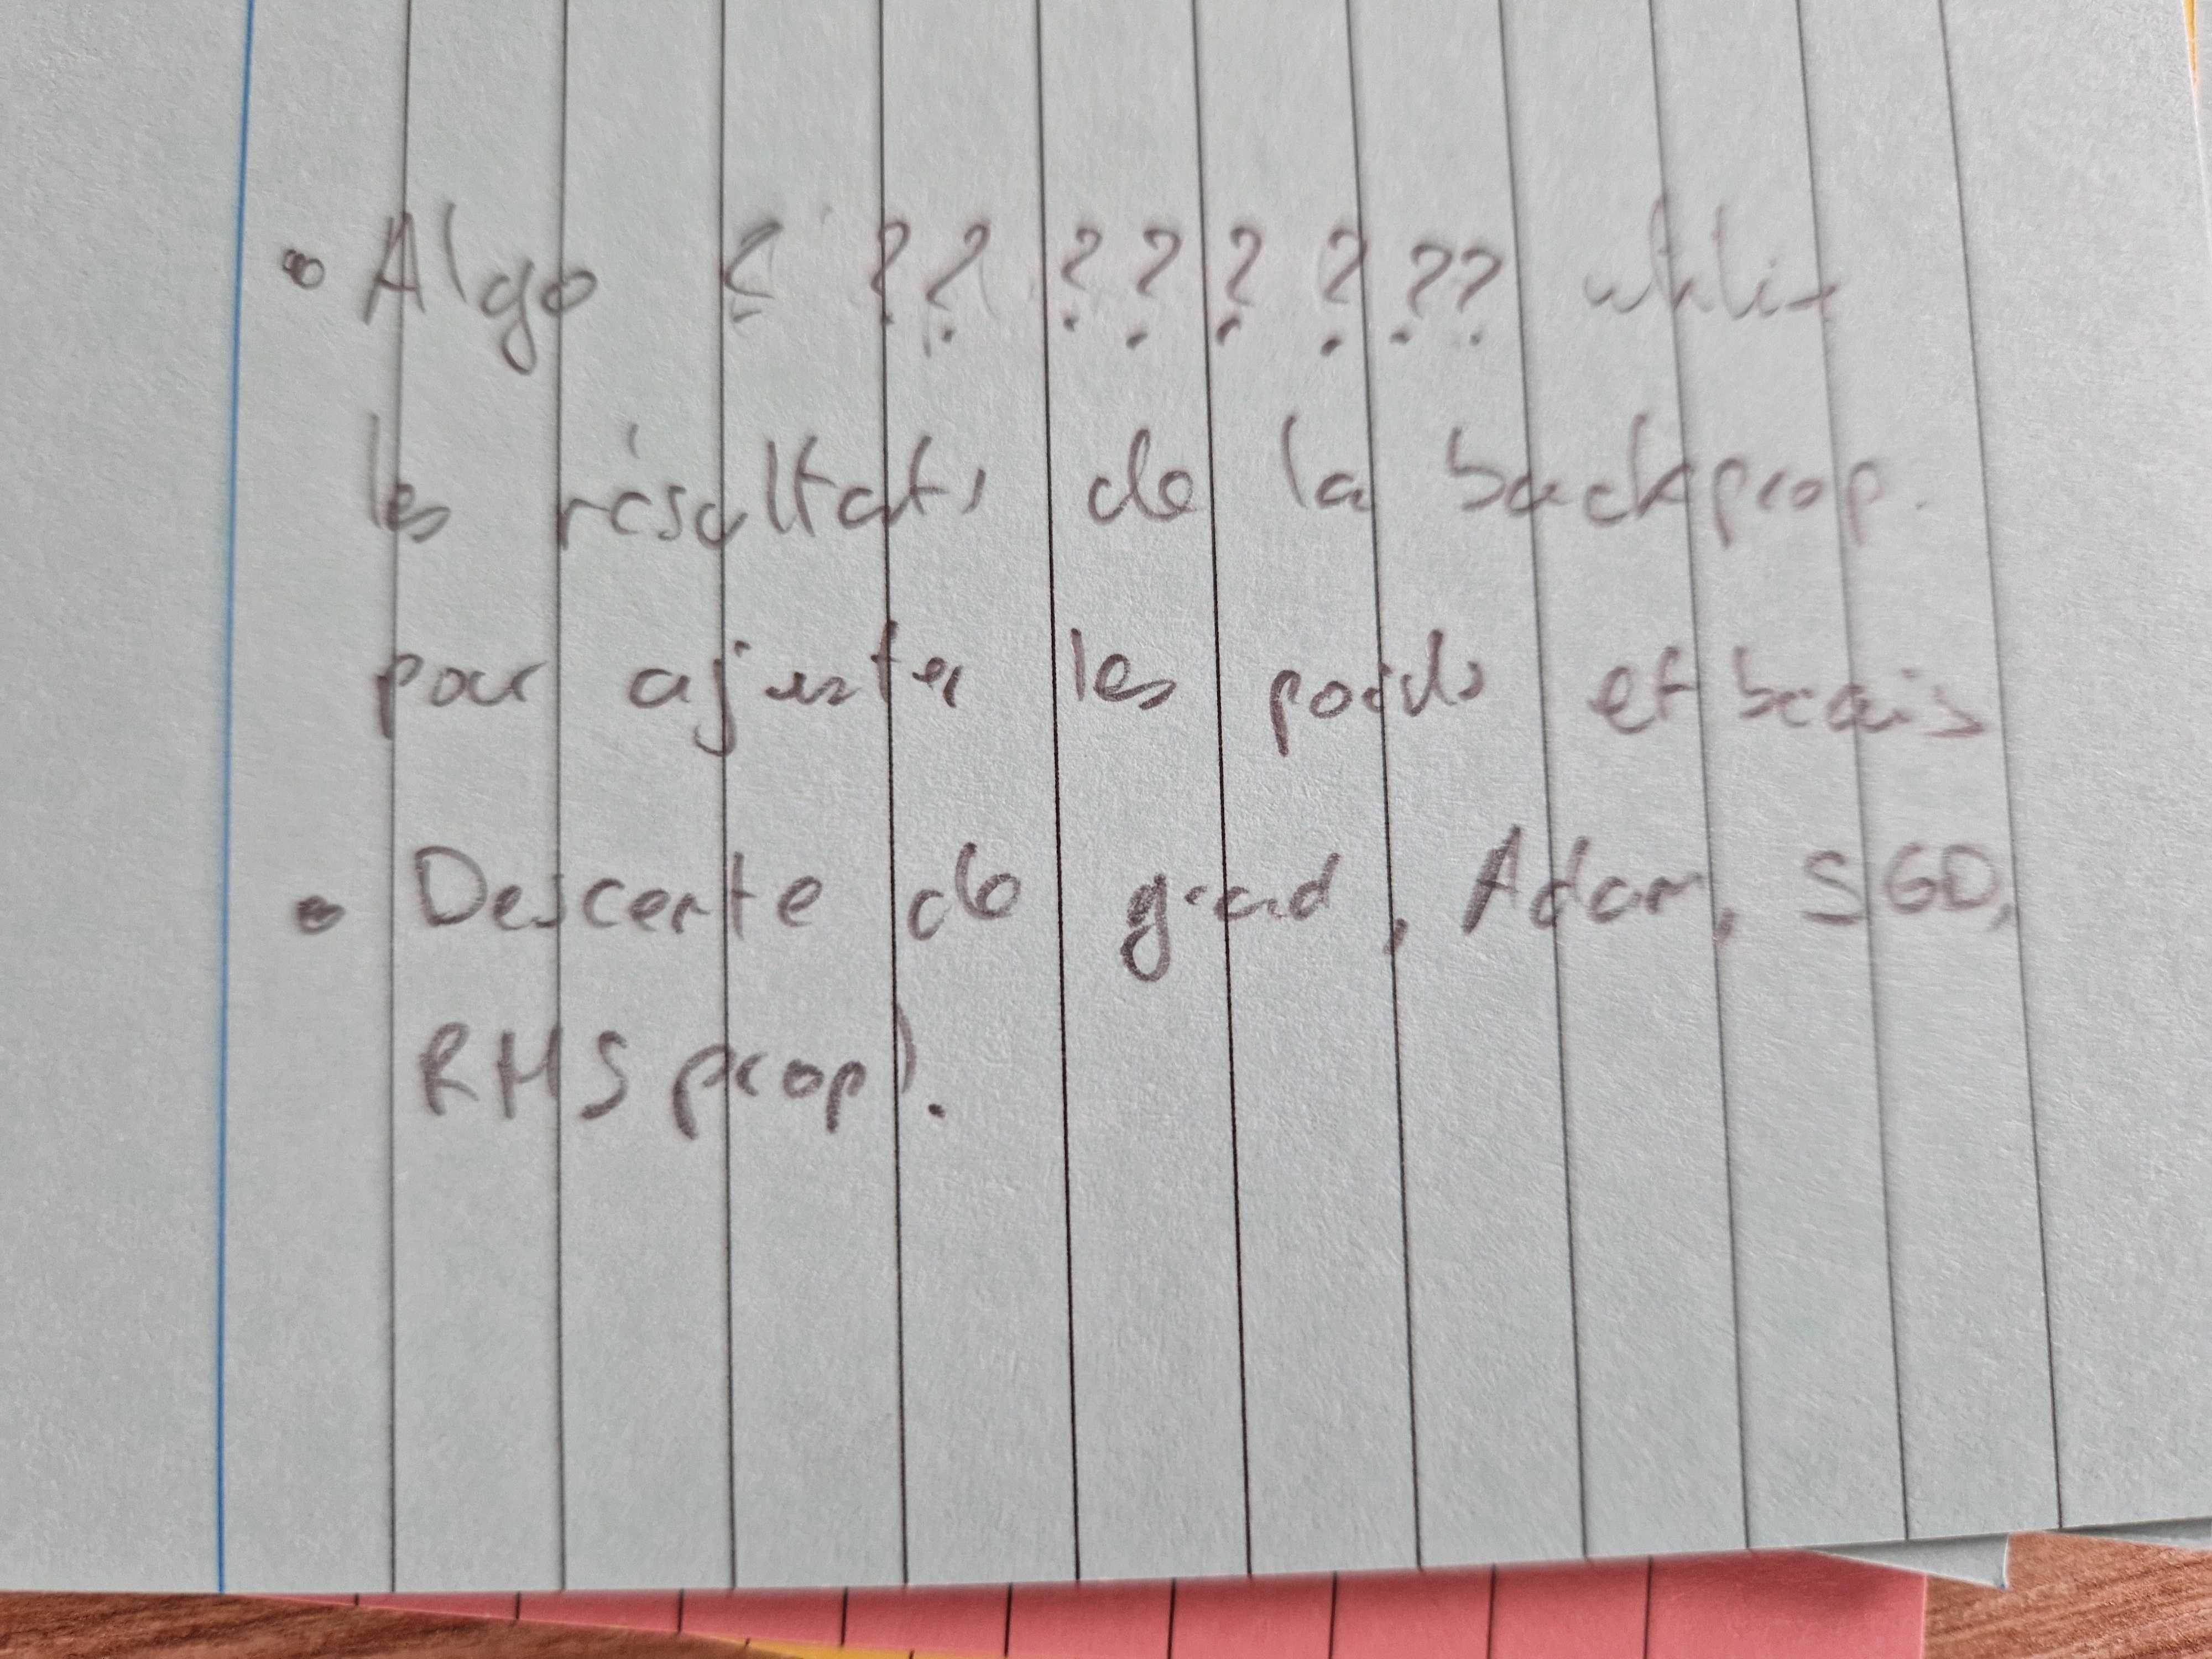 • Algo ? ?? ??? ? ?? utilise
les résultats de la backprop.
pour ajuster les poids et biais
• Descente de grad, Adam, SGD,
RMSprop).